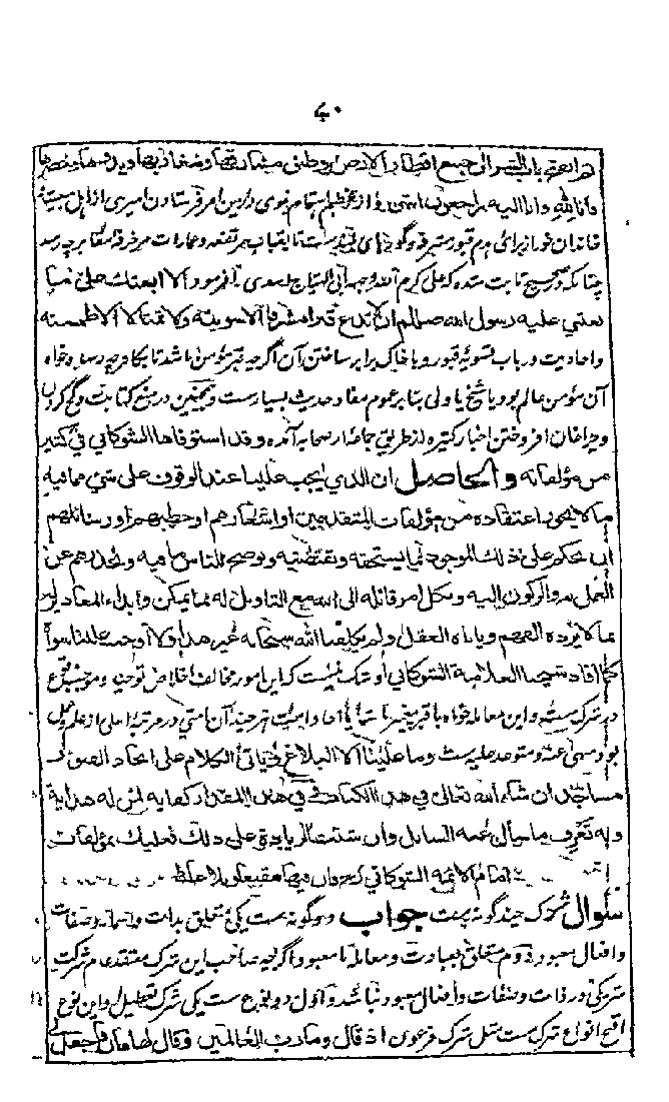 ۷۰
وانا لله وانا الیه راجعون انتهی و از عظیم اهتمام نبوی درین امر فرستادن امیری از اهل بیت
خاندان خود از برای هدم قبور مشرفه
چنانکه در صحیح ثابت شده که علی کرم الله وجهه ابی الهیاج اسدی را فرمود الا ابعثك علی ما
بعثنی علیه رسول الله صللم ان لا تدع قبرا مشرفا الا سویته ولا تمثالا الا طمسته
و احادیث در باب تسویهٔ قبور و با خاک برابر ساختن آن اگرچه قبر مؤمن باشد
آن مؤمن عالم بود یا شیخ یا ولی بنا بر عموم مفاد حدیث بسیار ست و همچنین در منع کتابت و گچ کردن
و چراغان افروختن اخبار کثیره از طریق جماعهٔ از صحابه آمده و قد استوفاها الشوکانی فی کثیر
من مؤلفاته والحاصل ان الذی یجب علینا عند الوقوف علی شیء مما فیه
ما لا یجوز اعتقاده من مؤلفات المتقدمین او اشعارهم او خطبهم او رسائلهم
ان نحکم علی ذلك الموجود بما یستحقه ویقتضیه ونوضح للناس ما فیه ونحذرهم عن
العمل به والرکون الیه ونکل امر قائله الی الله مع التاویل له بما یمکن وابداء المعاذیر له
بما لا یرده الفهم ویاباه العقل ولم یکلفنا الله سبحانه غیر هذا ولا اوجب علینا سواه
کما افاد شیخنا العلامة الشوکانی و شک نیست که این امور مخالف اخلاص توحید و موجب وقوع
در شرک ست و این معامله خواه با قبر پیغمبر باشد یا با احاد امت هر چند آن امتی در مرتبهٔ اعلی از علم و عمل
بود منهی عنه و متوعد علیه ست وما علینا الا البلاغ ویاتی الکلام علی اتخاذ القبور
مساجد ان شاء الله تعالی فی هذا الکتاب وفی هذا المقدار کفایة لمن له هدایة
وبه تعرف ما سال عنه السائل وان شئت الزیادة علی ذلك فعلیك بمؤلفات
امام الائمة الشوکانی
سؤال شرک چند گونه است جواب دو گونه ست یکی متعلق بذات و اسماء و صفات
و افعال معبود دوم متعلق بعبادت و معامله با معبود اگرچه صاحب این شرک معتقد عدم شرکت
شریکی در ذات و صفات و افعال معبود نباشد و اول دو نوع ست یکی شرک تعطیل و این نوع
اقبح انواع شرک ست مثل شرک فرعون اذ قال وما رب العالمین وقال لهامان فاجعل لی